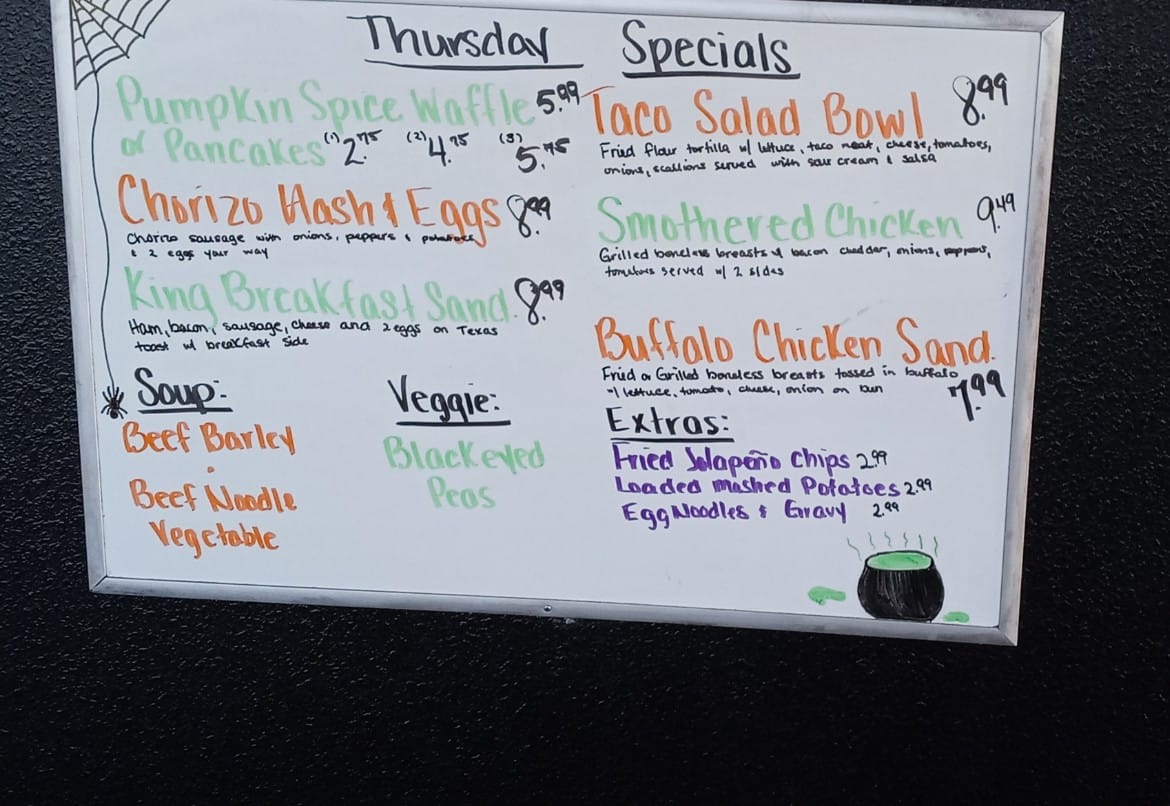 Thursday Specials
Pumpkin Spice Waffle 5.99
or Pancakes (1) 2.75 (2) 4.95 (3) 5.75
Chorizo Hash & Eggs 8.99
Chorizo sausage with onions, peppers & potatoes
& 2 eggs your way
King Breakfast Sand. 8.99
Ham, bacon, sausage, cheese and 2 eggs on Texas
toast w/ breakfast side
Soup:
Beef Barley
Beef Noodle
Vegetable
Veggie:
Blackeyed
Peas
Taco Salad Bowl 8.99
Fried flour tortilla w/ lettuce, taco meat, cheese, tomatoes,
onions, scallions served with sour cream & salsa
Smothered Chicken 9.49
Grilled boneless breasts w/ bacon cheddar, onions, peppers,
tomatoes served w/ 2 sides
Buffalo Chicken Sand.
Fried or Grilled boneless breasts tossed in buffalo
w/ lettuce, tomato, cheese, onion on bun 7.99
Extras:
Fried Jalapeño Chips 2.99
Loaded mashed Potatoes 2.99
Egg Noodles & Gravy 2.99